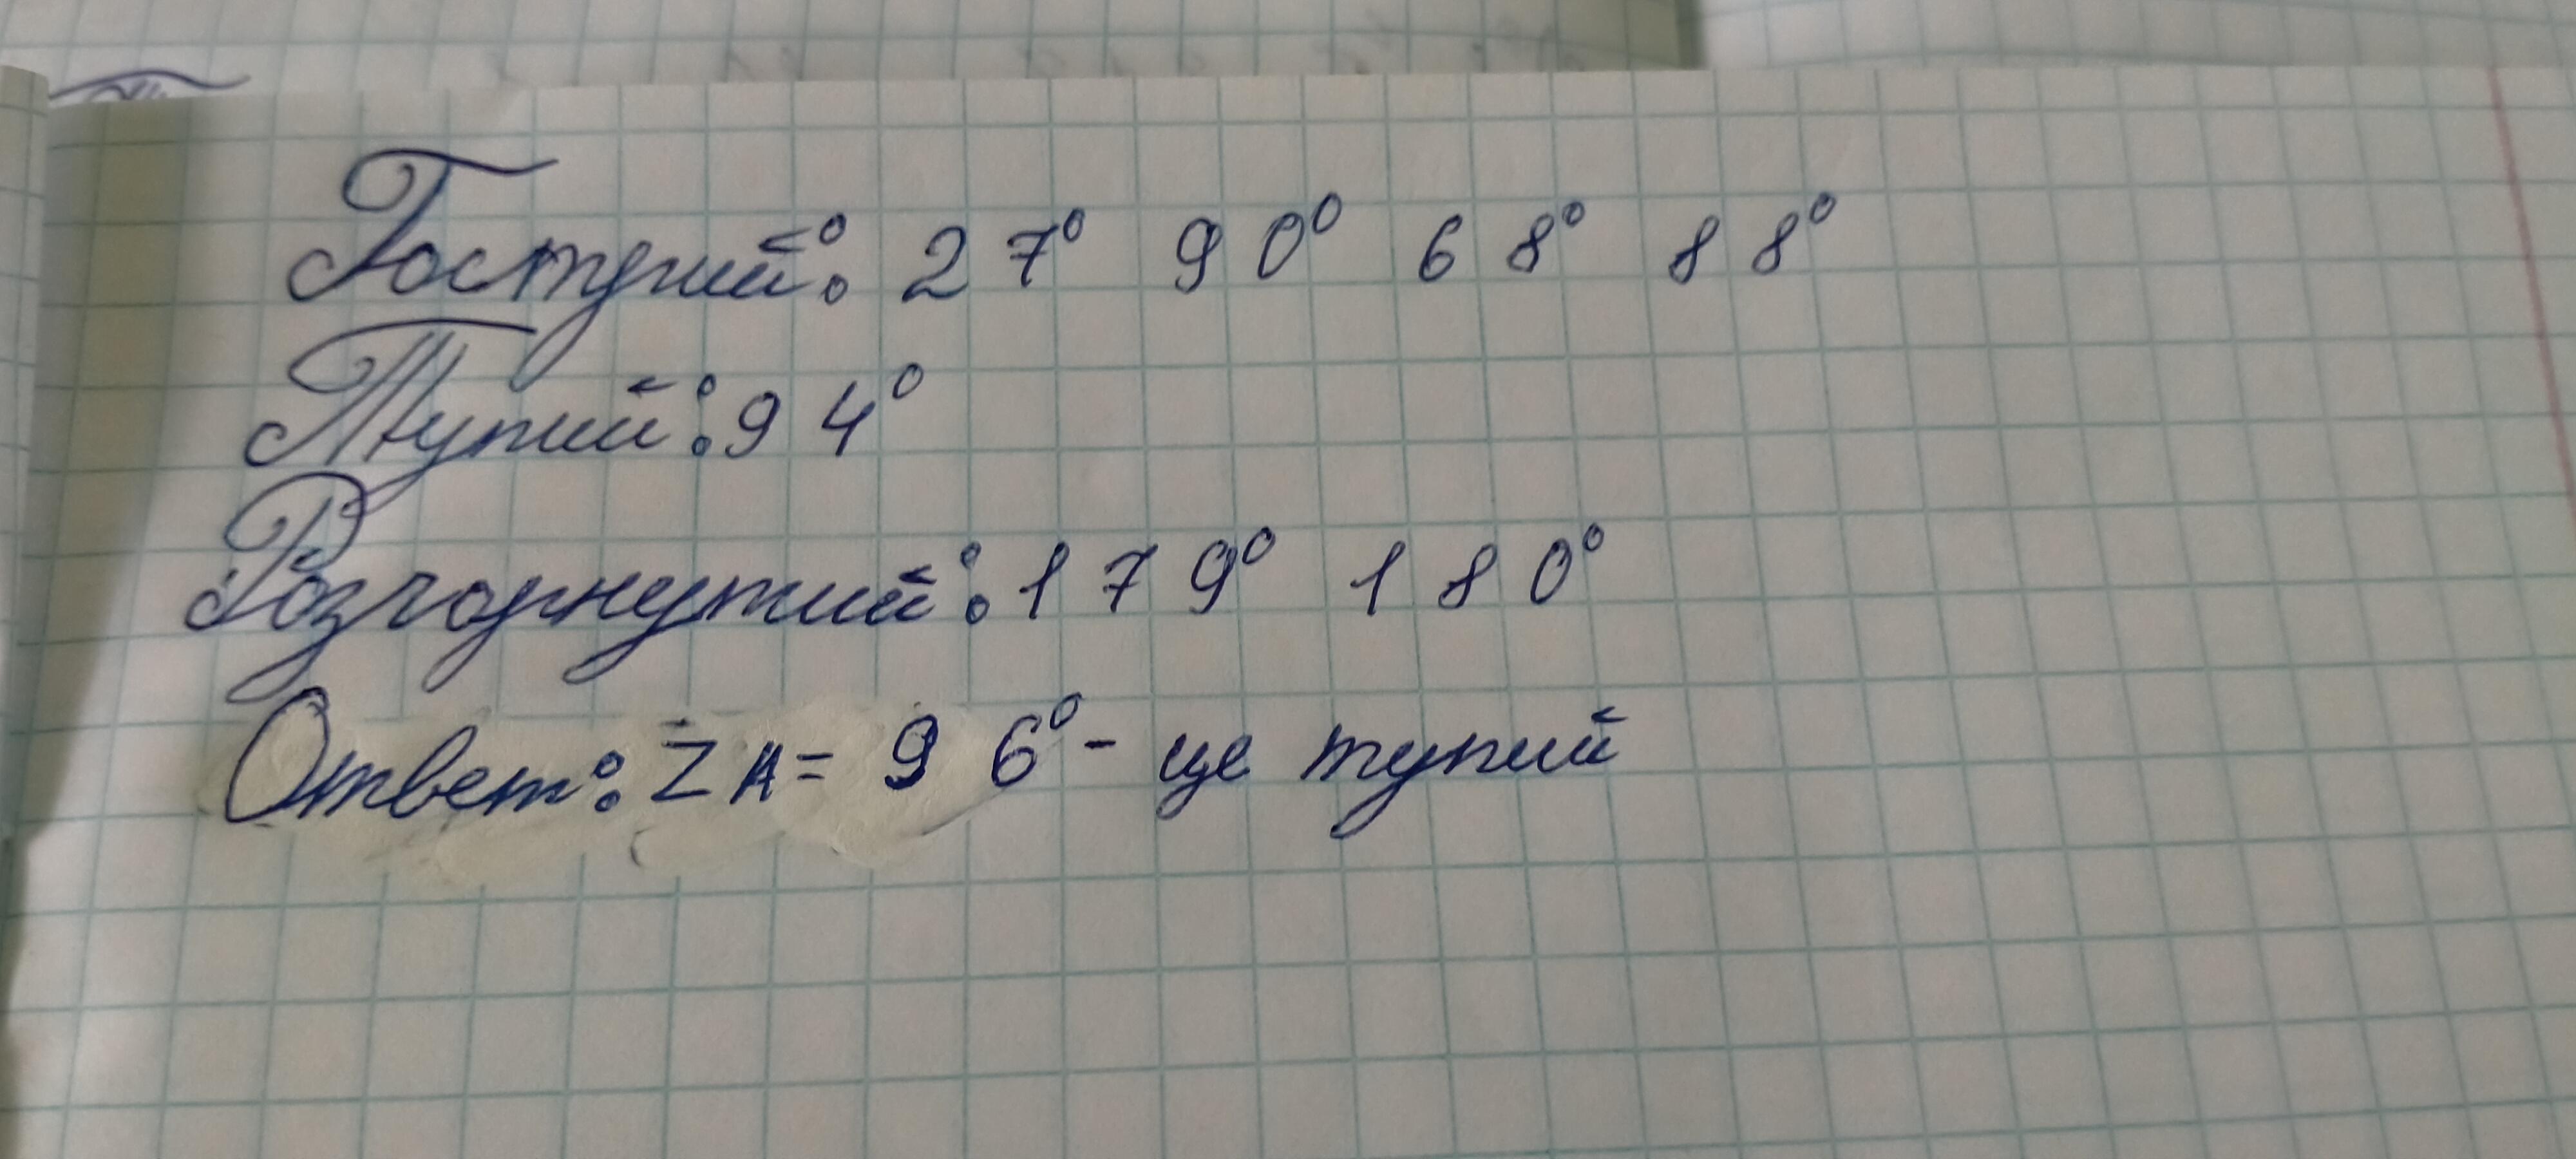 Гострий: 27° 90° 68° 88°
Тупий: 94°
Розгорнутий: 179° 180°
Ответ: ∠A = 96° - це тупий